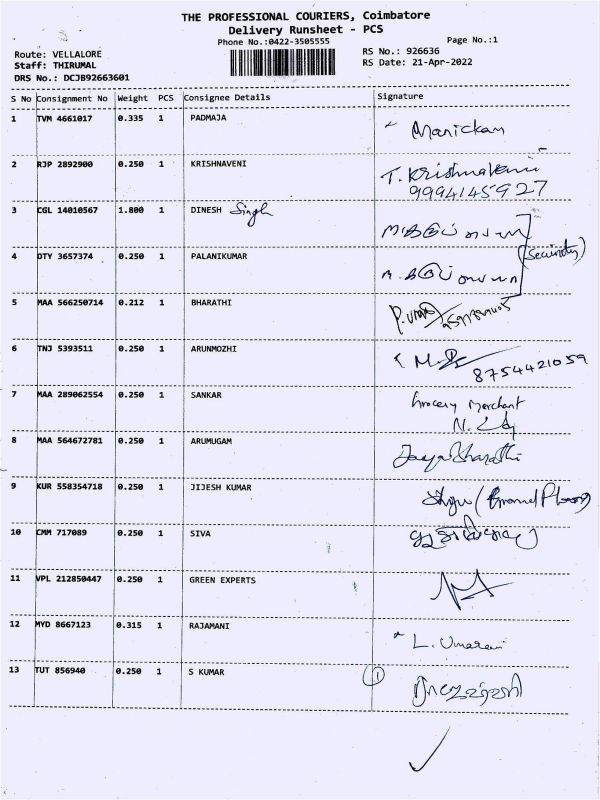 THE PROFESSIONAL COURIERS, Coimbatore
Delivery Runsheet - PCS
Phone No.:0422-3505555
Page No.:1
Route: VELLALORE
RS No.: 926636
Staff: THIRUMAL
RS Date: 21-Apr-2022
DRS No.: DCJB92663601
S No Consignment No Weight PCS Consignee Details Signature
1 TVM 4661017 0.335 1 PADMAJA Manickam
2 RJP 2892900 0.250 1 KRISHNAVENI T. Krishnaveni
9994145927
3 CGL 14010567 1.800 1 DINESH Singh
(Security)
4 DTY 3657374 0.250 1 PALANIKUMAR
5 MAA 566250714 0.212 1 BHARATHI
6 TNJ 5393511 0.250 1 ARUNMOZHI
8754421059
7 MAA 289062554 0.250 1 SANKAR Grocery Merchant
8 MAA 564672781 0.250 1 ARUMUGAM Jayabharathi
9 KUR 558354718 0.250 1 JIJESH KUMAR
10 CMM 717089 0.250 1 SIVA
11 VPL 212850447 0.250 1 GREEN EXPERTS
12 MYD 8667123 0.315 1 RAJAMANI L. Umarani
13 TUT 856940 0.250 1 S KUMAR 1